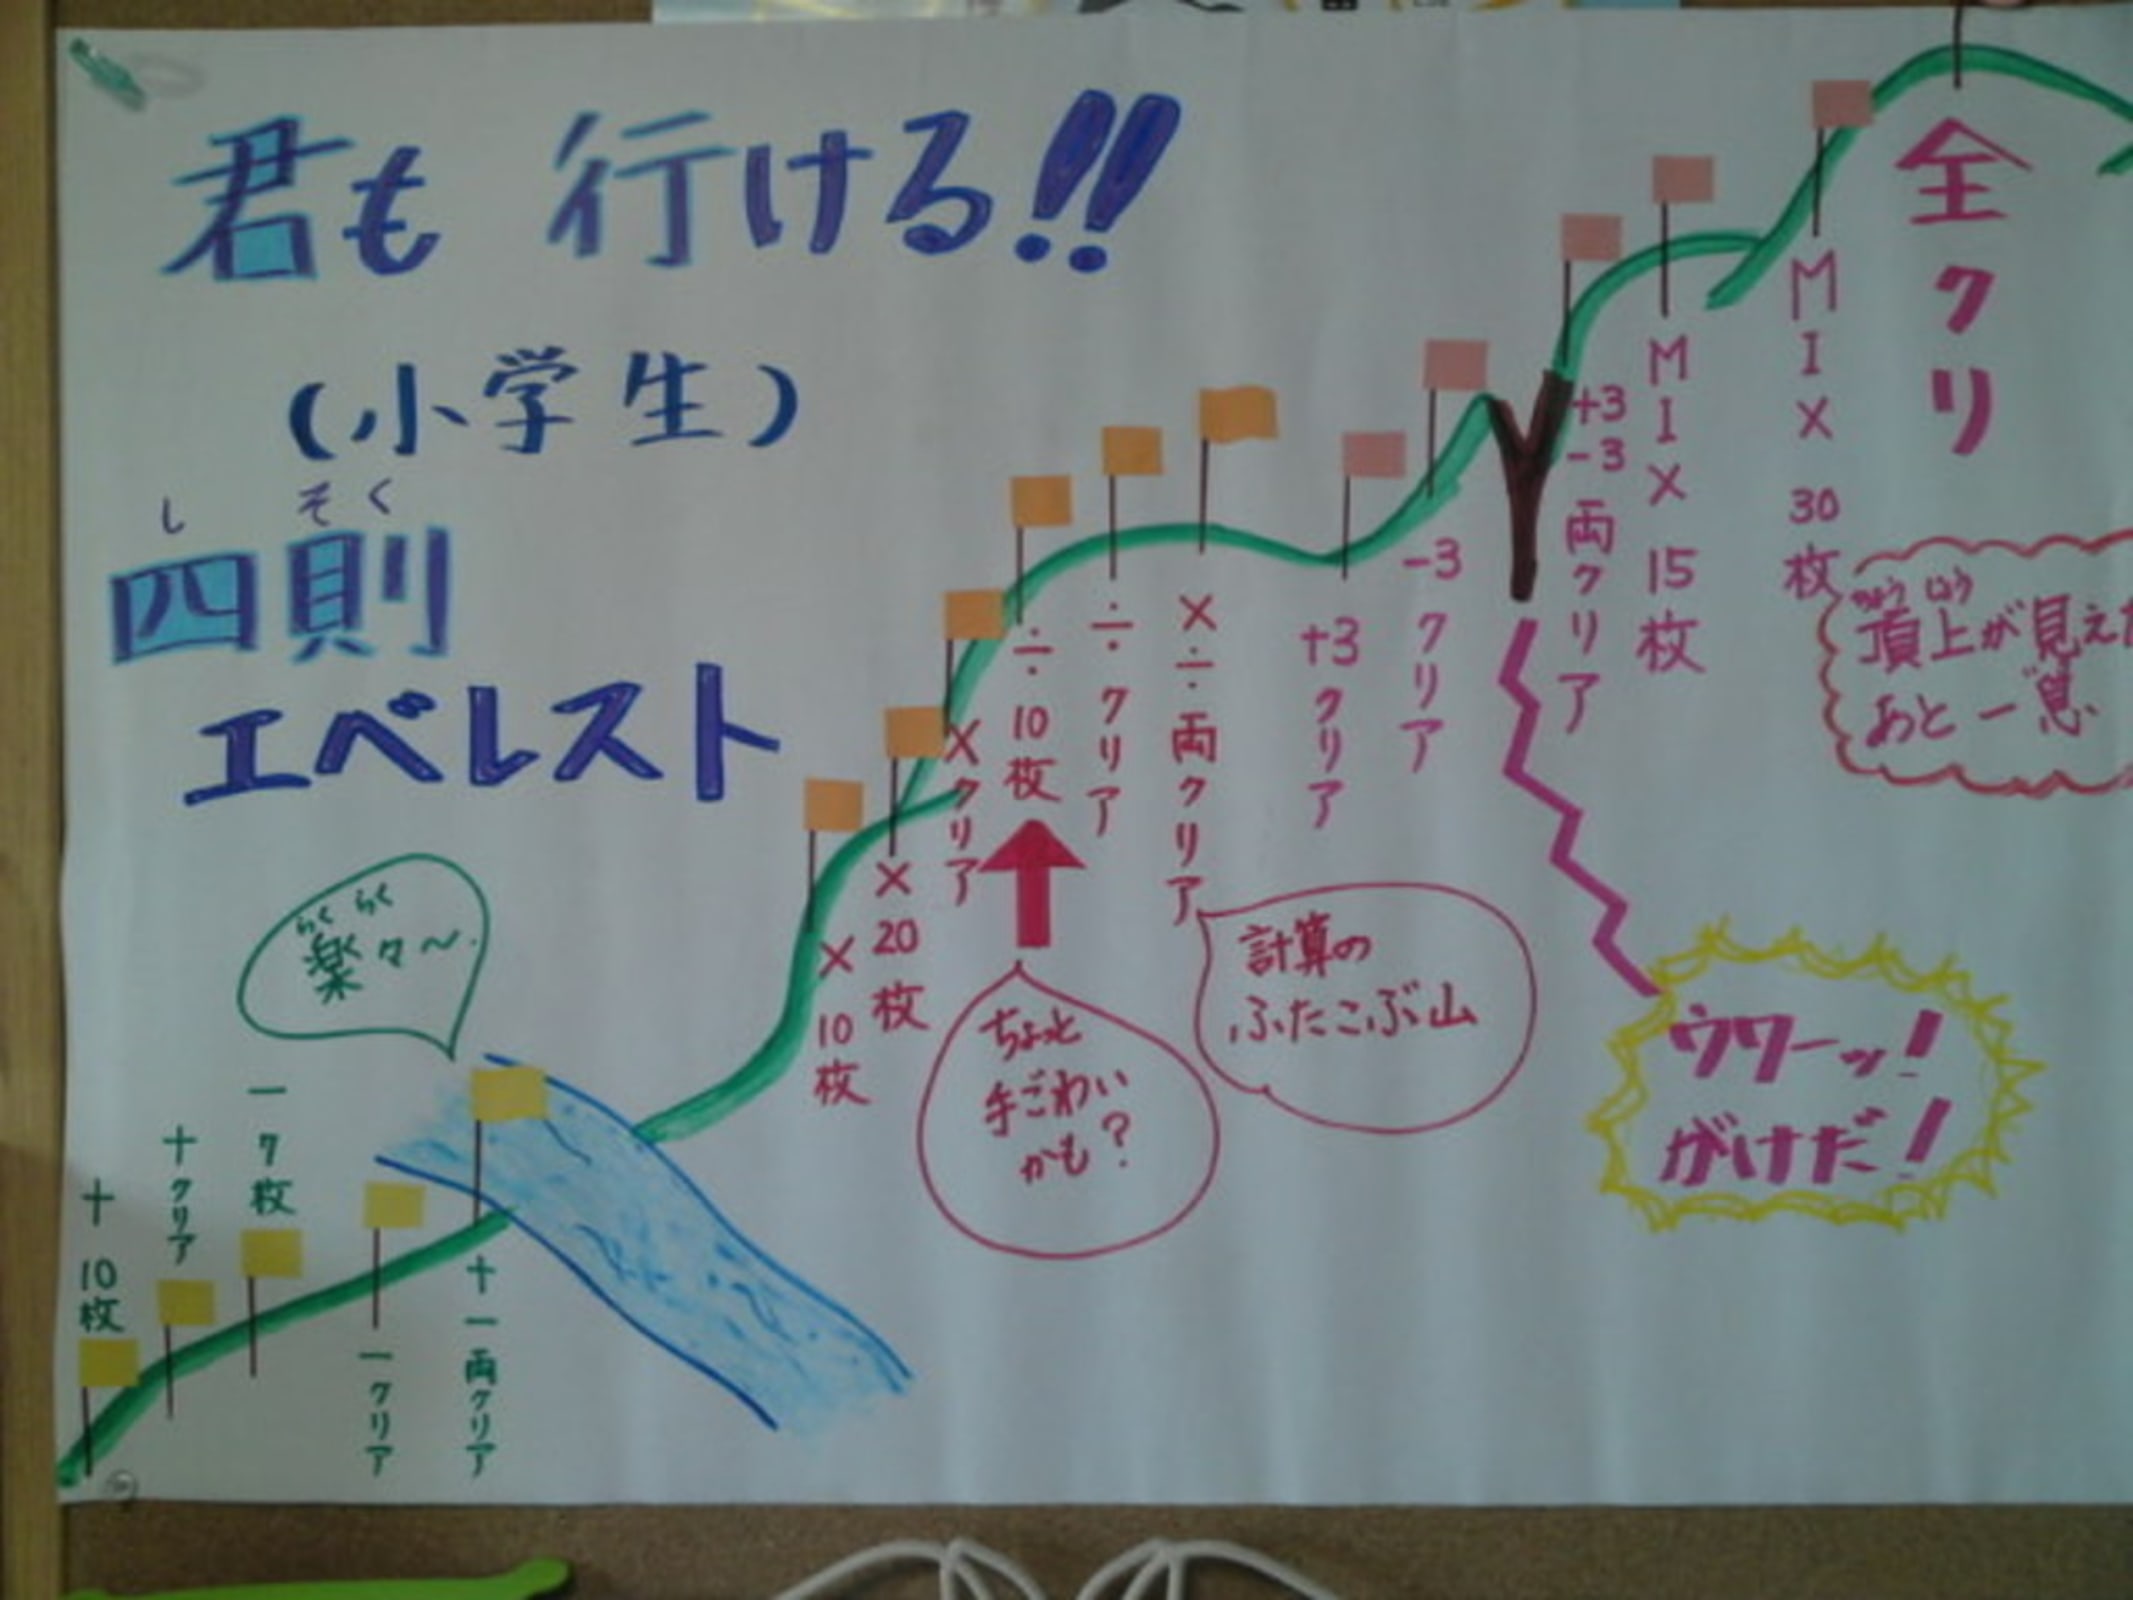 君も 行ける!!
(小学生)
しそく
四則
エベレスト
+10枚
+クリア
-7枚
-クリア
+-両クリア
らくらく
楽々〜.
×10枚
×20枚
×クリア
÷10枚
÷クリア
×÷両クリア
ちょっと
手ごわい
かも?
計算の
ふたこぶ山
+3クリア
-3クリア
+3
-3
両クリア
ウワーッ!
がけだ!
MIX 15枚
MIX 30枚
全クリ
ちょうじょう
頂上が見えた
あと一息